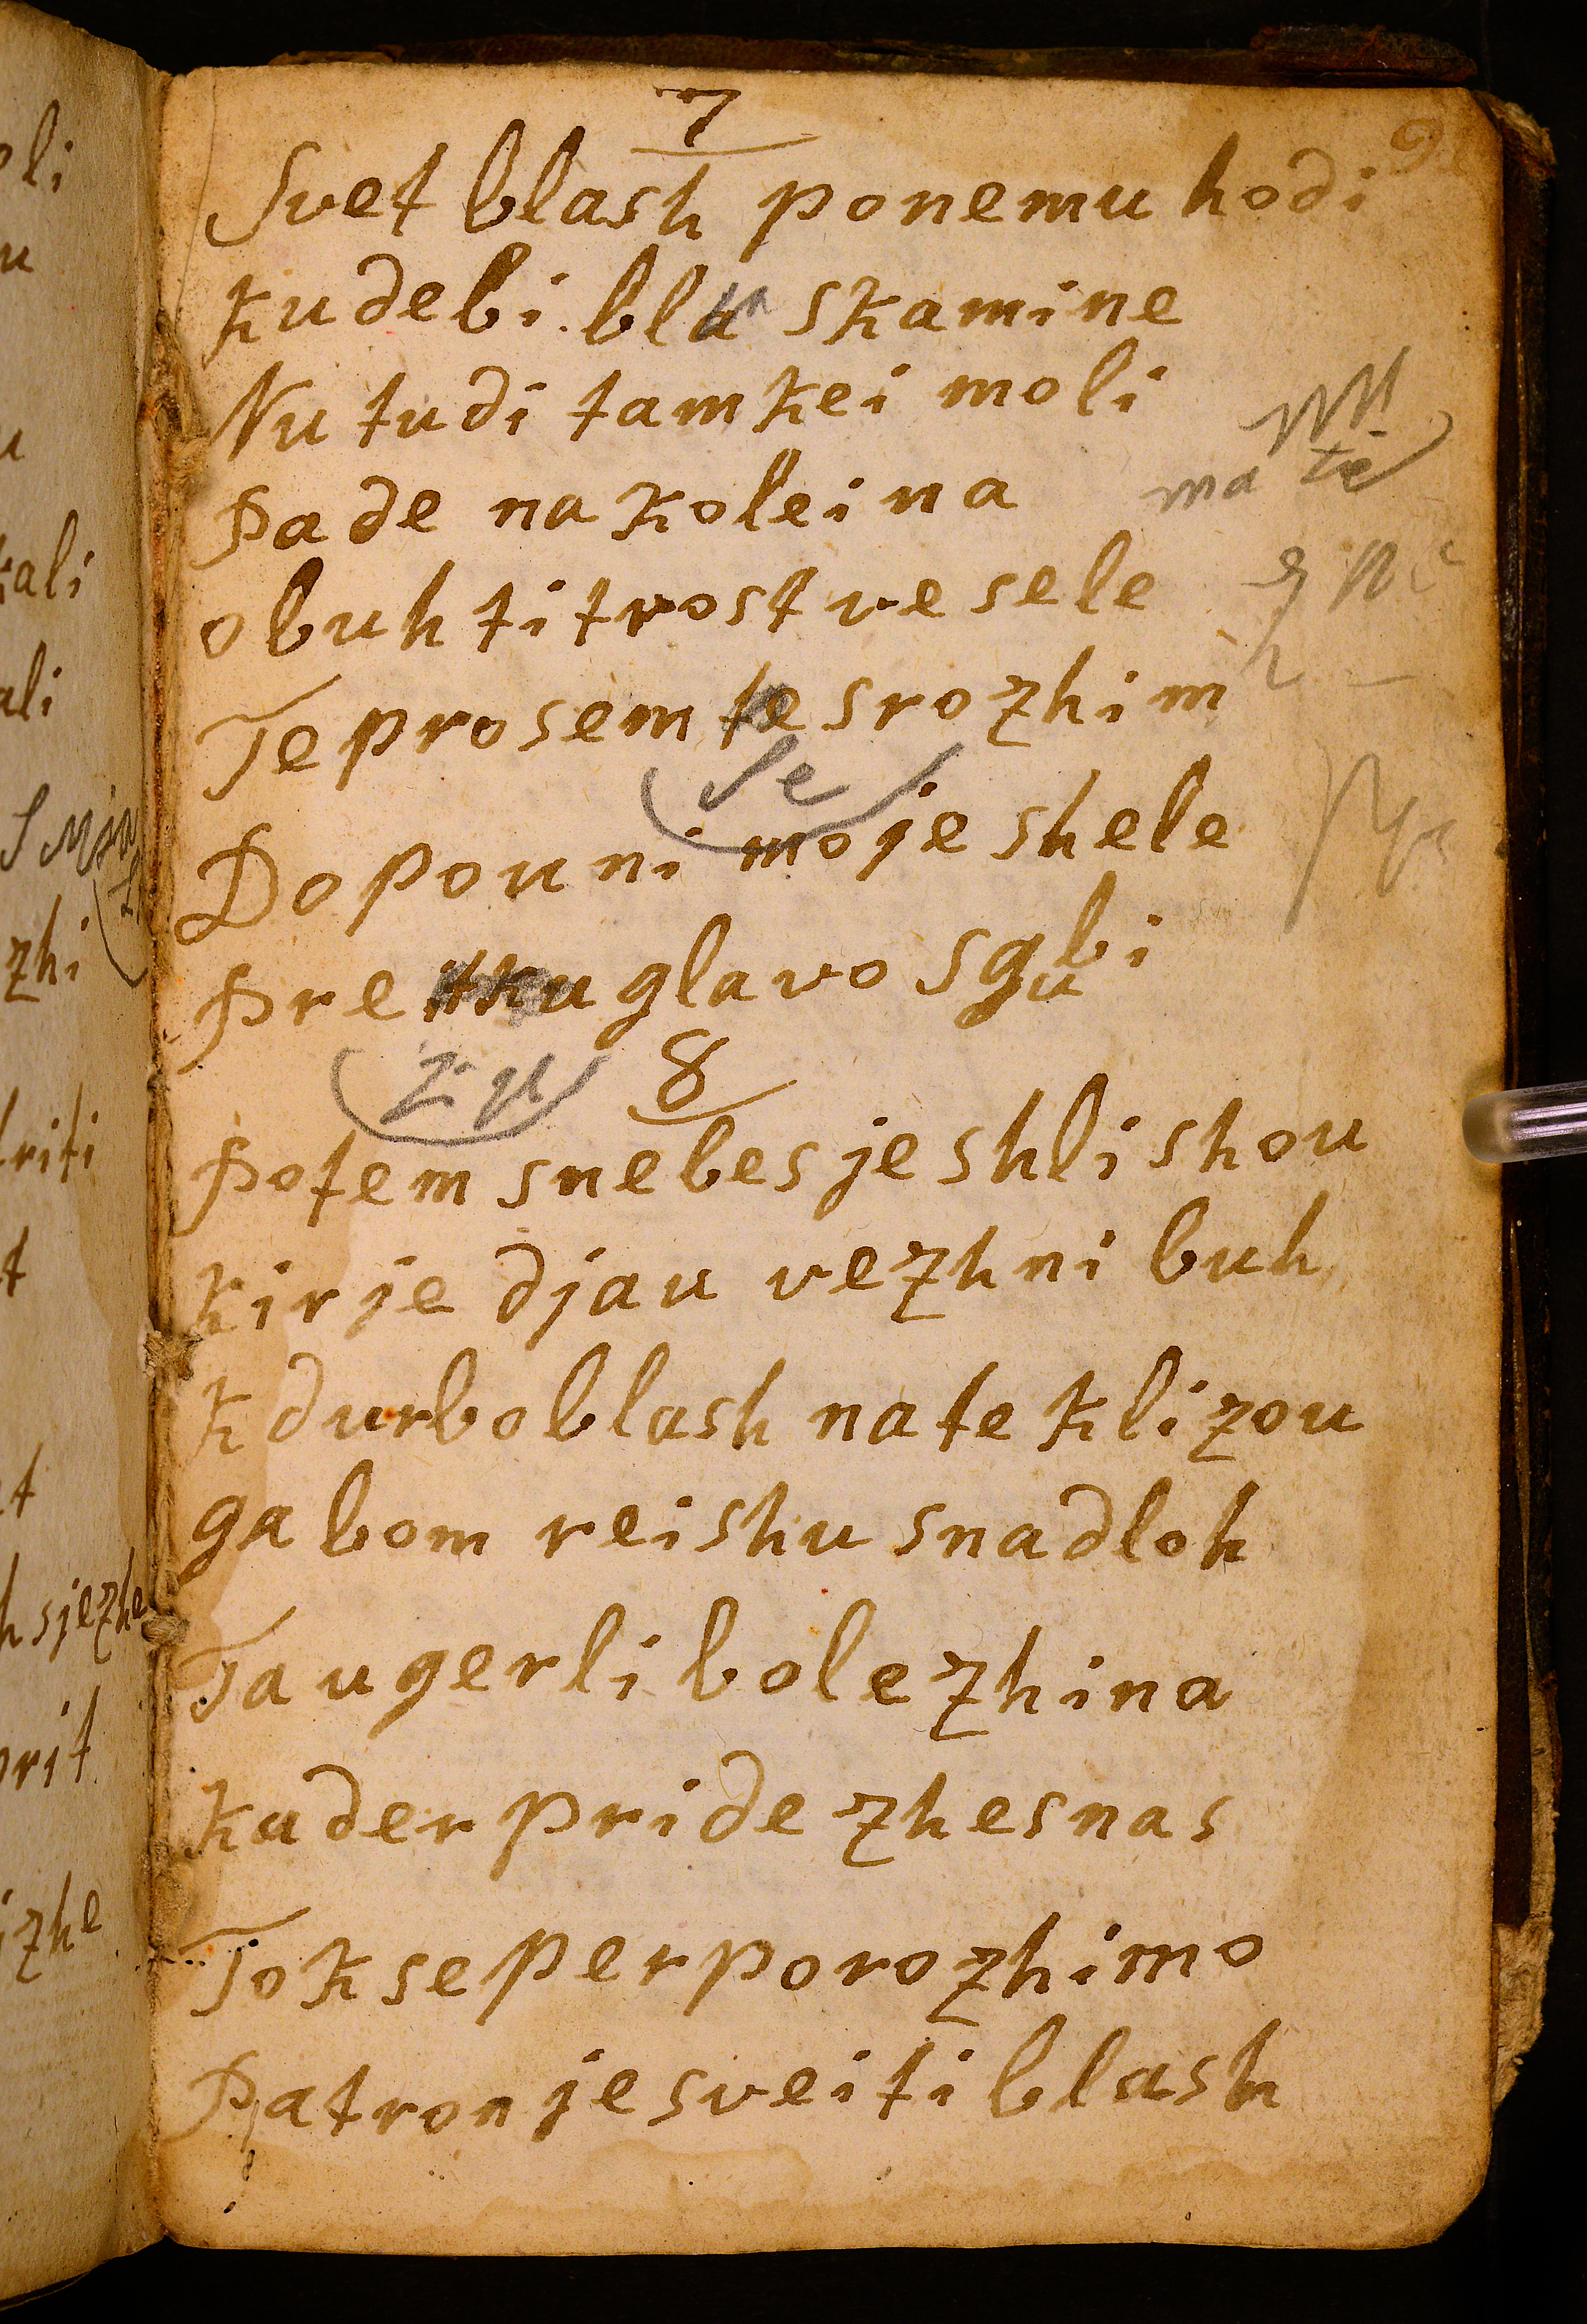 7
Svet blash ponemu hodi
kudebi bla skamine
Nu tudi tamkei moli
Pade nakoleina
obuh ti trost vesele
Te prosem te srozhim
se
Dopouni moje shele
Pre glavo sgubi
8
Potem snebes je shlishou
kir je djau vezhni buh
kdurboblash nate klizou
ga bom reishu snadloh
Taugerli bolezhina
kader pride zhesnas
Tok se per porozhimo
Patron je sveiti blash